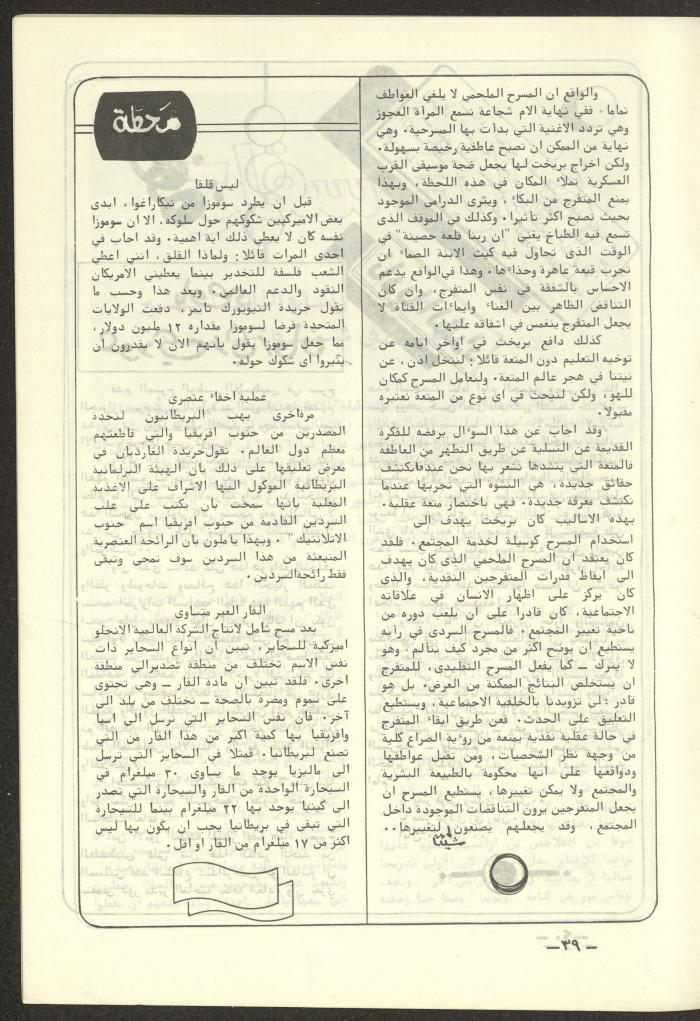 والواقع ان المسرح الملحمي لا يلغي العواطف
تماما ٠ ففي نهاية الام شجاعة نسمع المرأة العجوز
وهي تردد الاغنية التي بدأت بها المسرحية٠ وهي
نهاية من الممكن ان تصبح عاطفية رخيصة بسهولة٠
ولكن اخراج بريخت لها يجعل ضجة موسيقى القرب
العسكرية تملاء المكان في هذه اللحظة، وبهذا
يمنع المتفرج من البكاء ، ويثرى الدرامى الموجود
بحيث تصبح اكثر تأثيرا ٠ وكذلك في الموقف الذى
تسمع فيه الطباخ يغني "ان ربنا قلعة حصينة" في
الوقت الذى تحاول فيه كيت الابنة الصماء ان
تجرب قبعة عاهرة وحذاءها ٠ وهذا في الواقع يدعم
الاحساس بالشفقة في نفس المتفرج، وان كان
التناقض الظاهر بين الغناء وايماءات الفتاة لا
يجعل المتفرج ينغمس في اشفاقه عليها ٠
كذلك دافع بريخت في اواخر ايامه عن
توخيه التعليم دون المتعة قائلا : لنتخل اذن ، عن
نيتنا في هجر عالم المتعة٠ ولنعامل المسرح كمكان
للهو، ولكن لنبحث في اى نوع من المتعة نعتبره
مقبولا ٠
وقد اجاب عن هذا السوءال برفضه للفكرة
القديمة عن التسلية عن طريق التطهر من العاطفة
فالمتعة التي ينشدها نشعر بها نحن عندمانكتشف
حقائق جديدة، هي النشوة التي نجربها عندما
نكتشف معرفة جديدة٠ فهي باختصار متعة عقلية٠
بهذه الاساليب كان بريخت يهدف الى
استخدام المسرح كوسيلة لخدمة المجتمع٠ فلقد
كان يعتقد ان المسرح الملحمي الذى كان يهدف
الى ايقاظ قدرات المتفرجين النقدية، والذى
كان يركز على اظهار الانسان في علاقاته
الاجتماعية، كان قادرا على ان يلعب دوره من
ناحية تغيير المجتمع٠ فالمسرح السردى في رأيه
يستطيع ان يوضح اكثر من مجرد كيف نتألم٠ وهو
لا يترك ــ كما يفعل المسرح التقليدى، للمتفرج
ان يستخلص النتائج الممكنة من العرض٠ بل هو
قادر على تزويدنا بالخلفية الاجتماعية، ويستطيع
التعليق على الحدث٠ فعن طريق ابقاء المتفرج
في حالة عقلية نقدية يمنعه من روءية الصراع كلية
من وجهة نظر الشخصيات، ومن تقبل عواطفها
ودوافعها على انها محكومة بالطبيعة البشرية
والمجتمع ولا يمكن تغييرها، يستطيع المسرح ان
يجعل المتفرجين يرون التناقضات الموجودة داخل
المجتمع ، وقد يجعلهم يصنعون شيئا لتغييرها٠٠
محطة
ليس قلقا
قبل ان يطرد سوموزا من نيكاراغوا، ابدى
بعض الاميركيين شكوكهم حول سلوكه، الا ان سوموزا
نفسه كان لا يعطي ذلك اية اهمية٠ وقد اجاب في
احدى المرات قائلا : ولماذا القلق، انني اعطي
الشعب فلسفة للتخدير بينما يعطيني الامريكان
النقود والدعم العالمي٠ وبعد هذا وحسب ما
تقول جريدة النيويورك تايمز، دفعت الولايات
المتحدة قرضا لسوموزا مقداره ١٢ مليون دولار،
مما جعل سوموزا يقول بأنهم الان لا يقدرون ان
يثيروا اى شكوك حوله٠
عملية اخفاء عنصرى
مرةاخرى يهب البريطانيون لنجدة
المصدرين من جنوب افريقيا والتي قاطعتهم
معظم دول العالم٠ تقول جريدة الغارديان في
معرض تعليقها على ذلك بأن الهيئة البرلمانية
البريطانية الموكول اليها الاشراف على الاغذية
المعلبة بأنها سمحت بان يكتب على علب
السردين القادمة من جنوب أفريقيا اسم "جنوب
الاتلانتيك" ٠ وبهذا يأملون بان الرائحة العنصرية
المنبعثة من هذا السردين سوف تمحى وتبقى
فقط رائحة السردين٠
القار الغير متساوى
بعد مسح شامل لانتاج الشركة العالمية الانجلو
اميركية للسجاير، تبين ان أنواع السجاير ذات
نفس الاسم تختلف من منطقة تصديرالى منطقة
اخرى٠ فلقد تبين ان مادة القار ــ وهي تحتوى
على سموم ومضرة بالصحة ــ تختلف من بلد الى
آخر٠ فان نفس السجاير التي ترسل الى اسيا
وافريقيا بها كمية اكبر من هذا القار من التي
تصنع لبريطانيا٠ فمثلا في السجاير التي ترسل
الى ماليزيا يوجد ما يساوى ٣٠ ميلغرام في
السيجارة الواحدة من القار والسيجارة التي تصدر
الى كينيا يوجد بها ٢٢ ميلغرام بينما للسيجارة
التي تبقى في بريطانيا يجب ان يكون بها ليس
اكثر من ١٧ ميلغرام من القار او اقل٠
ــ ٣٩ ــ